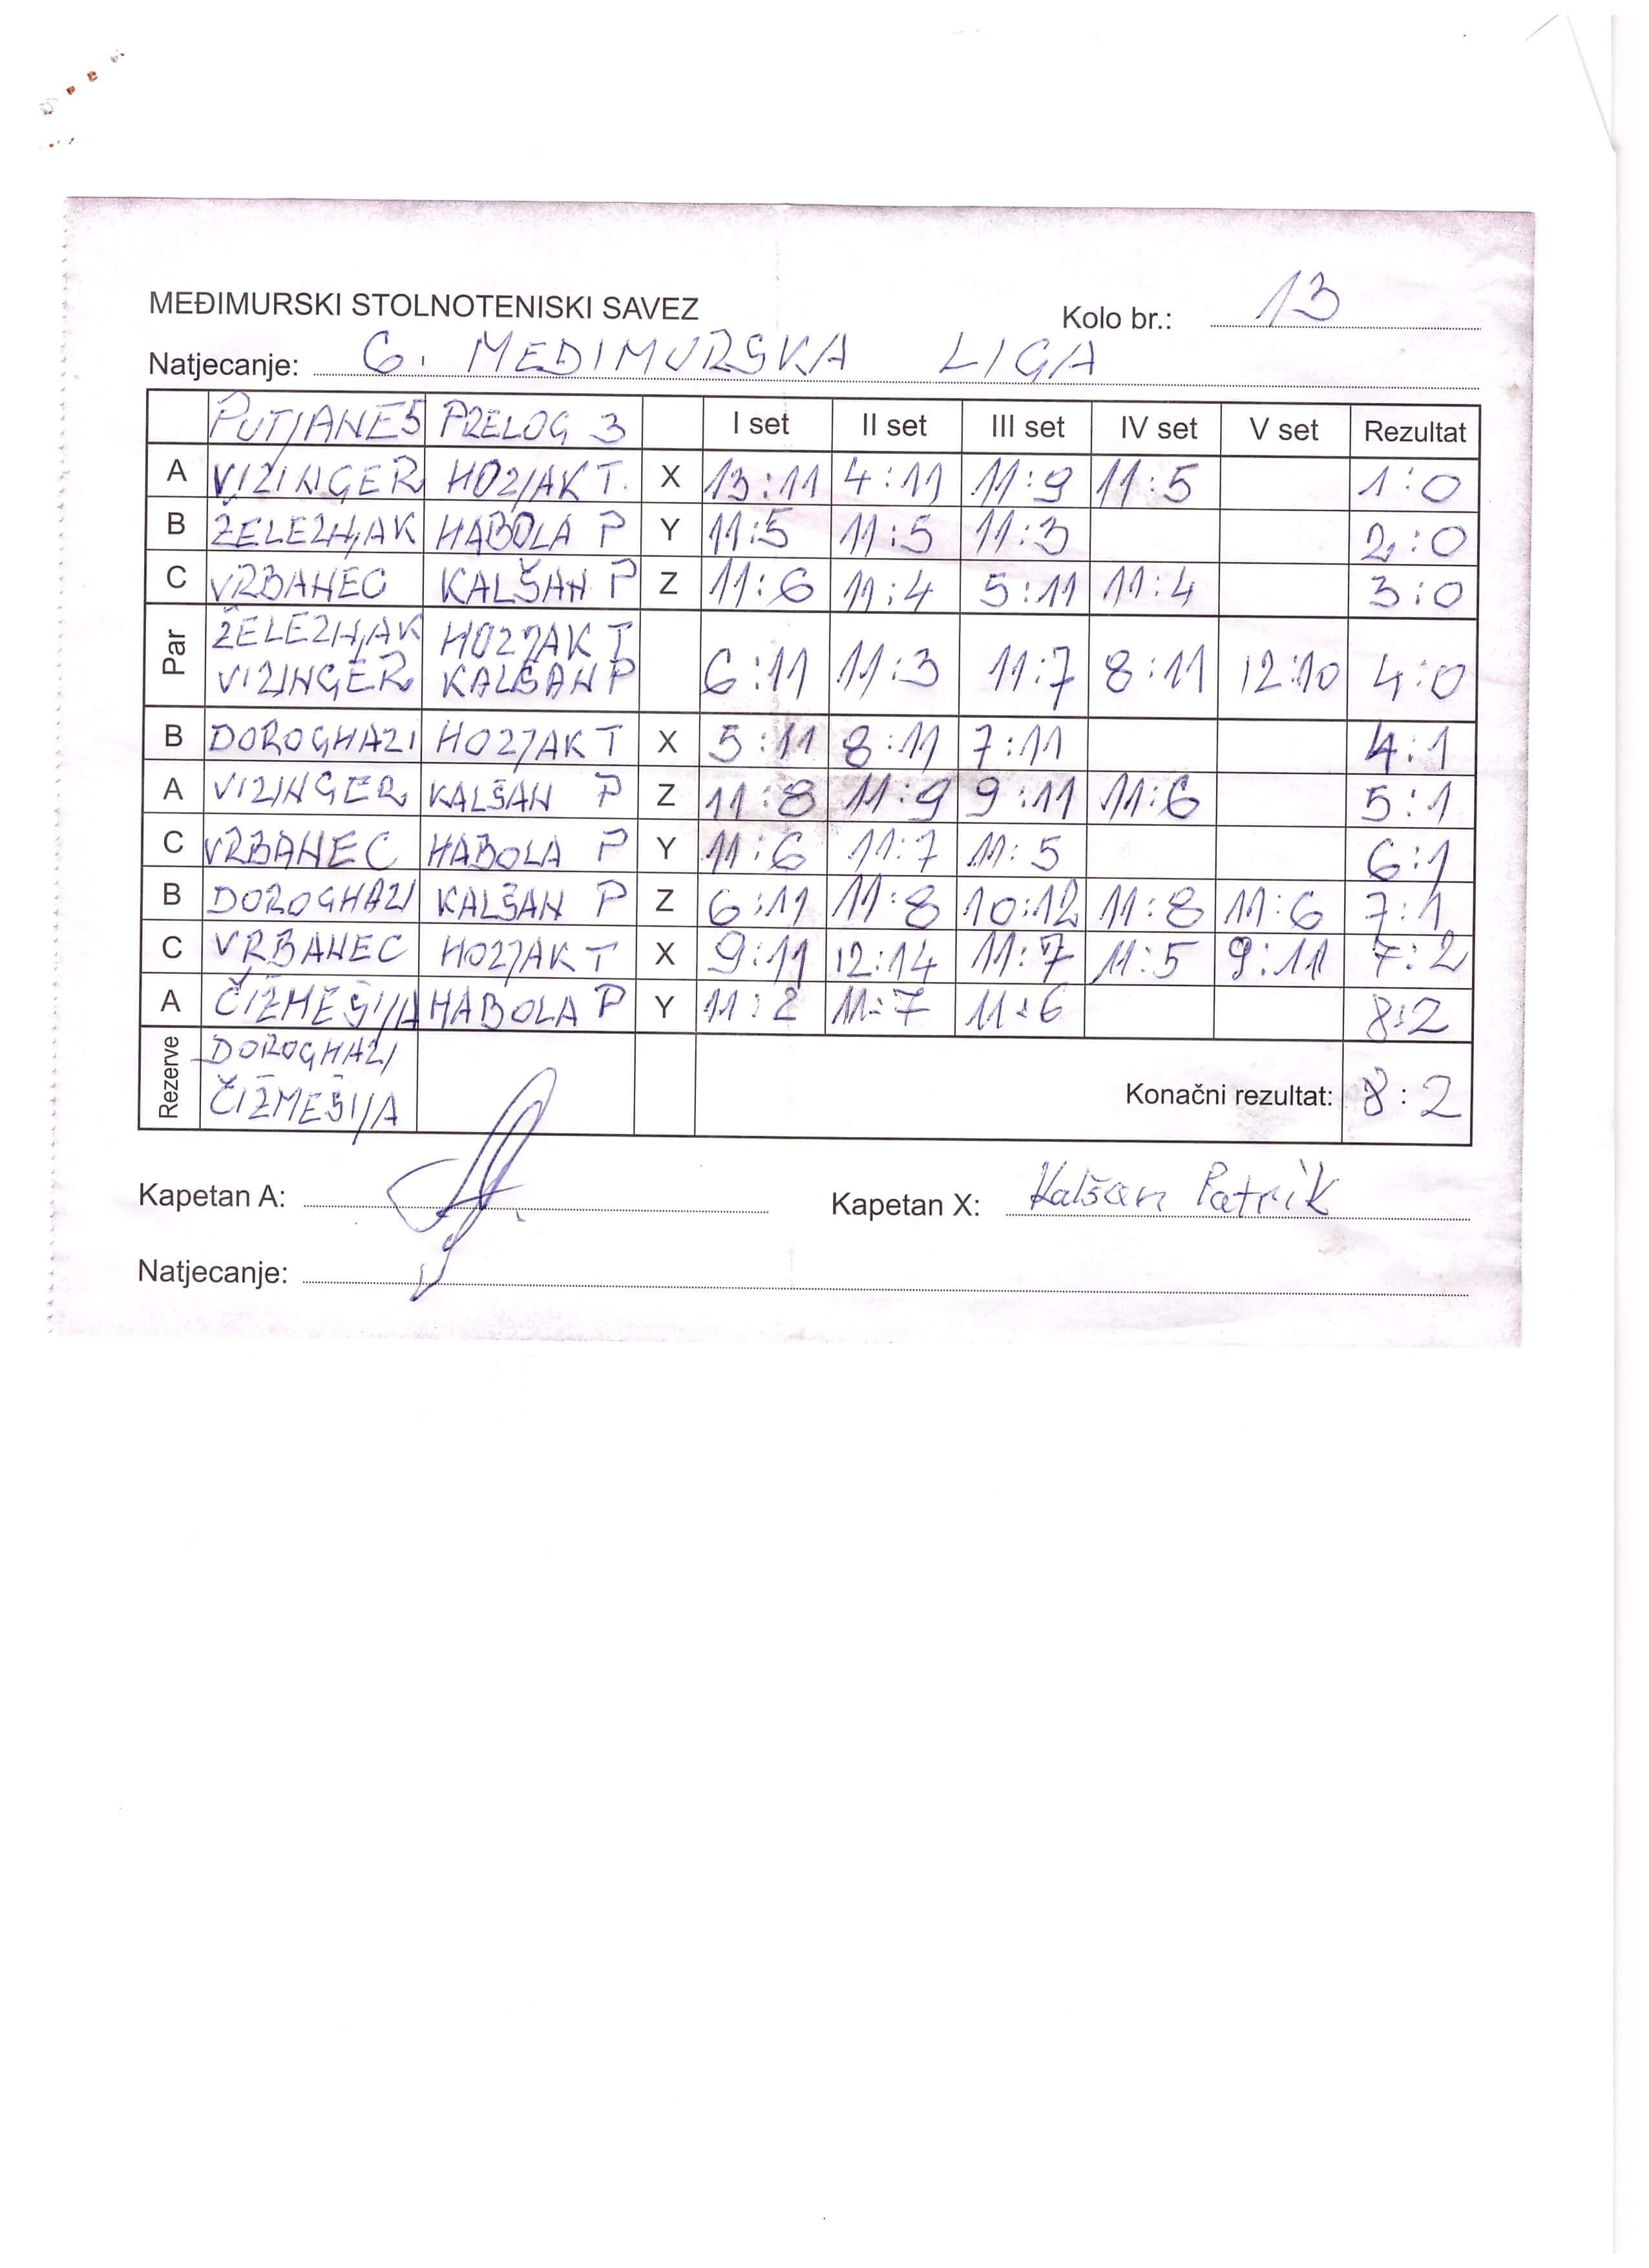 MEĐIMURSKI STOLNOTENISKI SAVEZ
Kolo br.: 13
Natjecanje: 6. MEĐIMURSKA LIGA
PUTJANE 5 PRELOG 3 I set II set III set IV set V set Rezultat
A VIZINGER HOZJAK T. X 13:11 4:11 11:9 11:5 1:0
B ŽELEZNJAK HABOLA P Y 11:5 11:5 11:3 2:0
C VRBANEC KALŠAN P Z 11:6 11:4 5:11 11:4 3:0
Par ŽELEZNJAK HOZJAK T
VIZINGER KALŠAN P 6:11 11:3 11:7 8:11 12:10 4:0
B DOROGHAZI HOZJAK T X 5:11 8:11 7:11 4:1
A VIZINGER KALŠAN P Z 11:8 11:9 9:11 11:6 5:1
C VRBANEC HABOLA P Y 11:6 11:7 11:5 6:1
B DOROGHAZI KALŠAN P Z 6:11 11:8 10:12 11:8 11:6 7:1
C VRBANEC HOZJAK T X 9:11 12:14 11:7 11:5 9:11 7:2
A ČIŽMEŠIJA HABOLA P Y 11:2 11:7 11:6 8:2
Rezerve DOROGHAZI
ČIŽMEŠIJA Konačni rezultat: 8:2
Kapetan A: Kapetan X: Kalšan Patrik
Natjecanje: